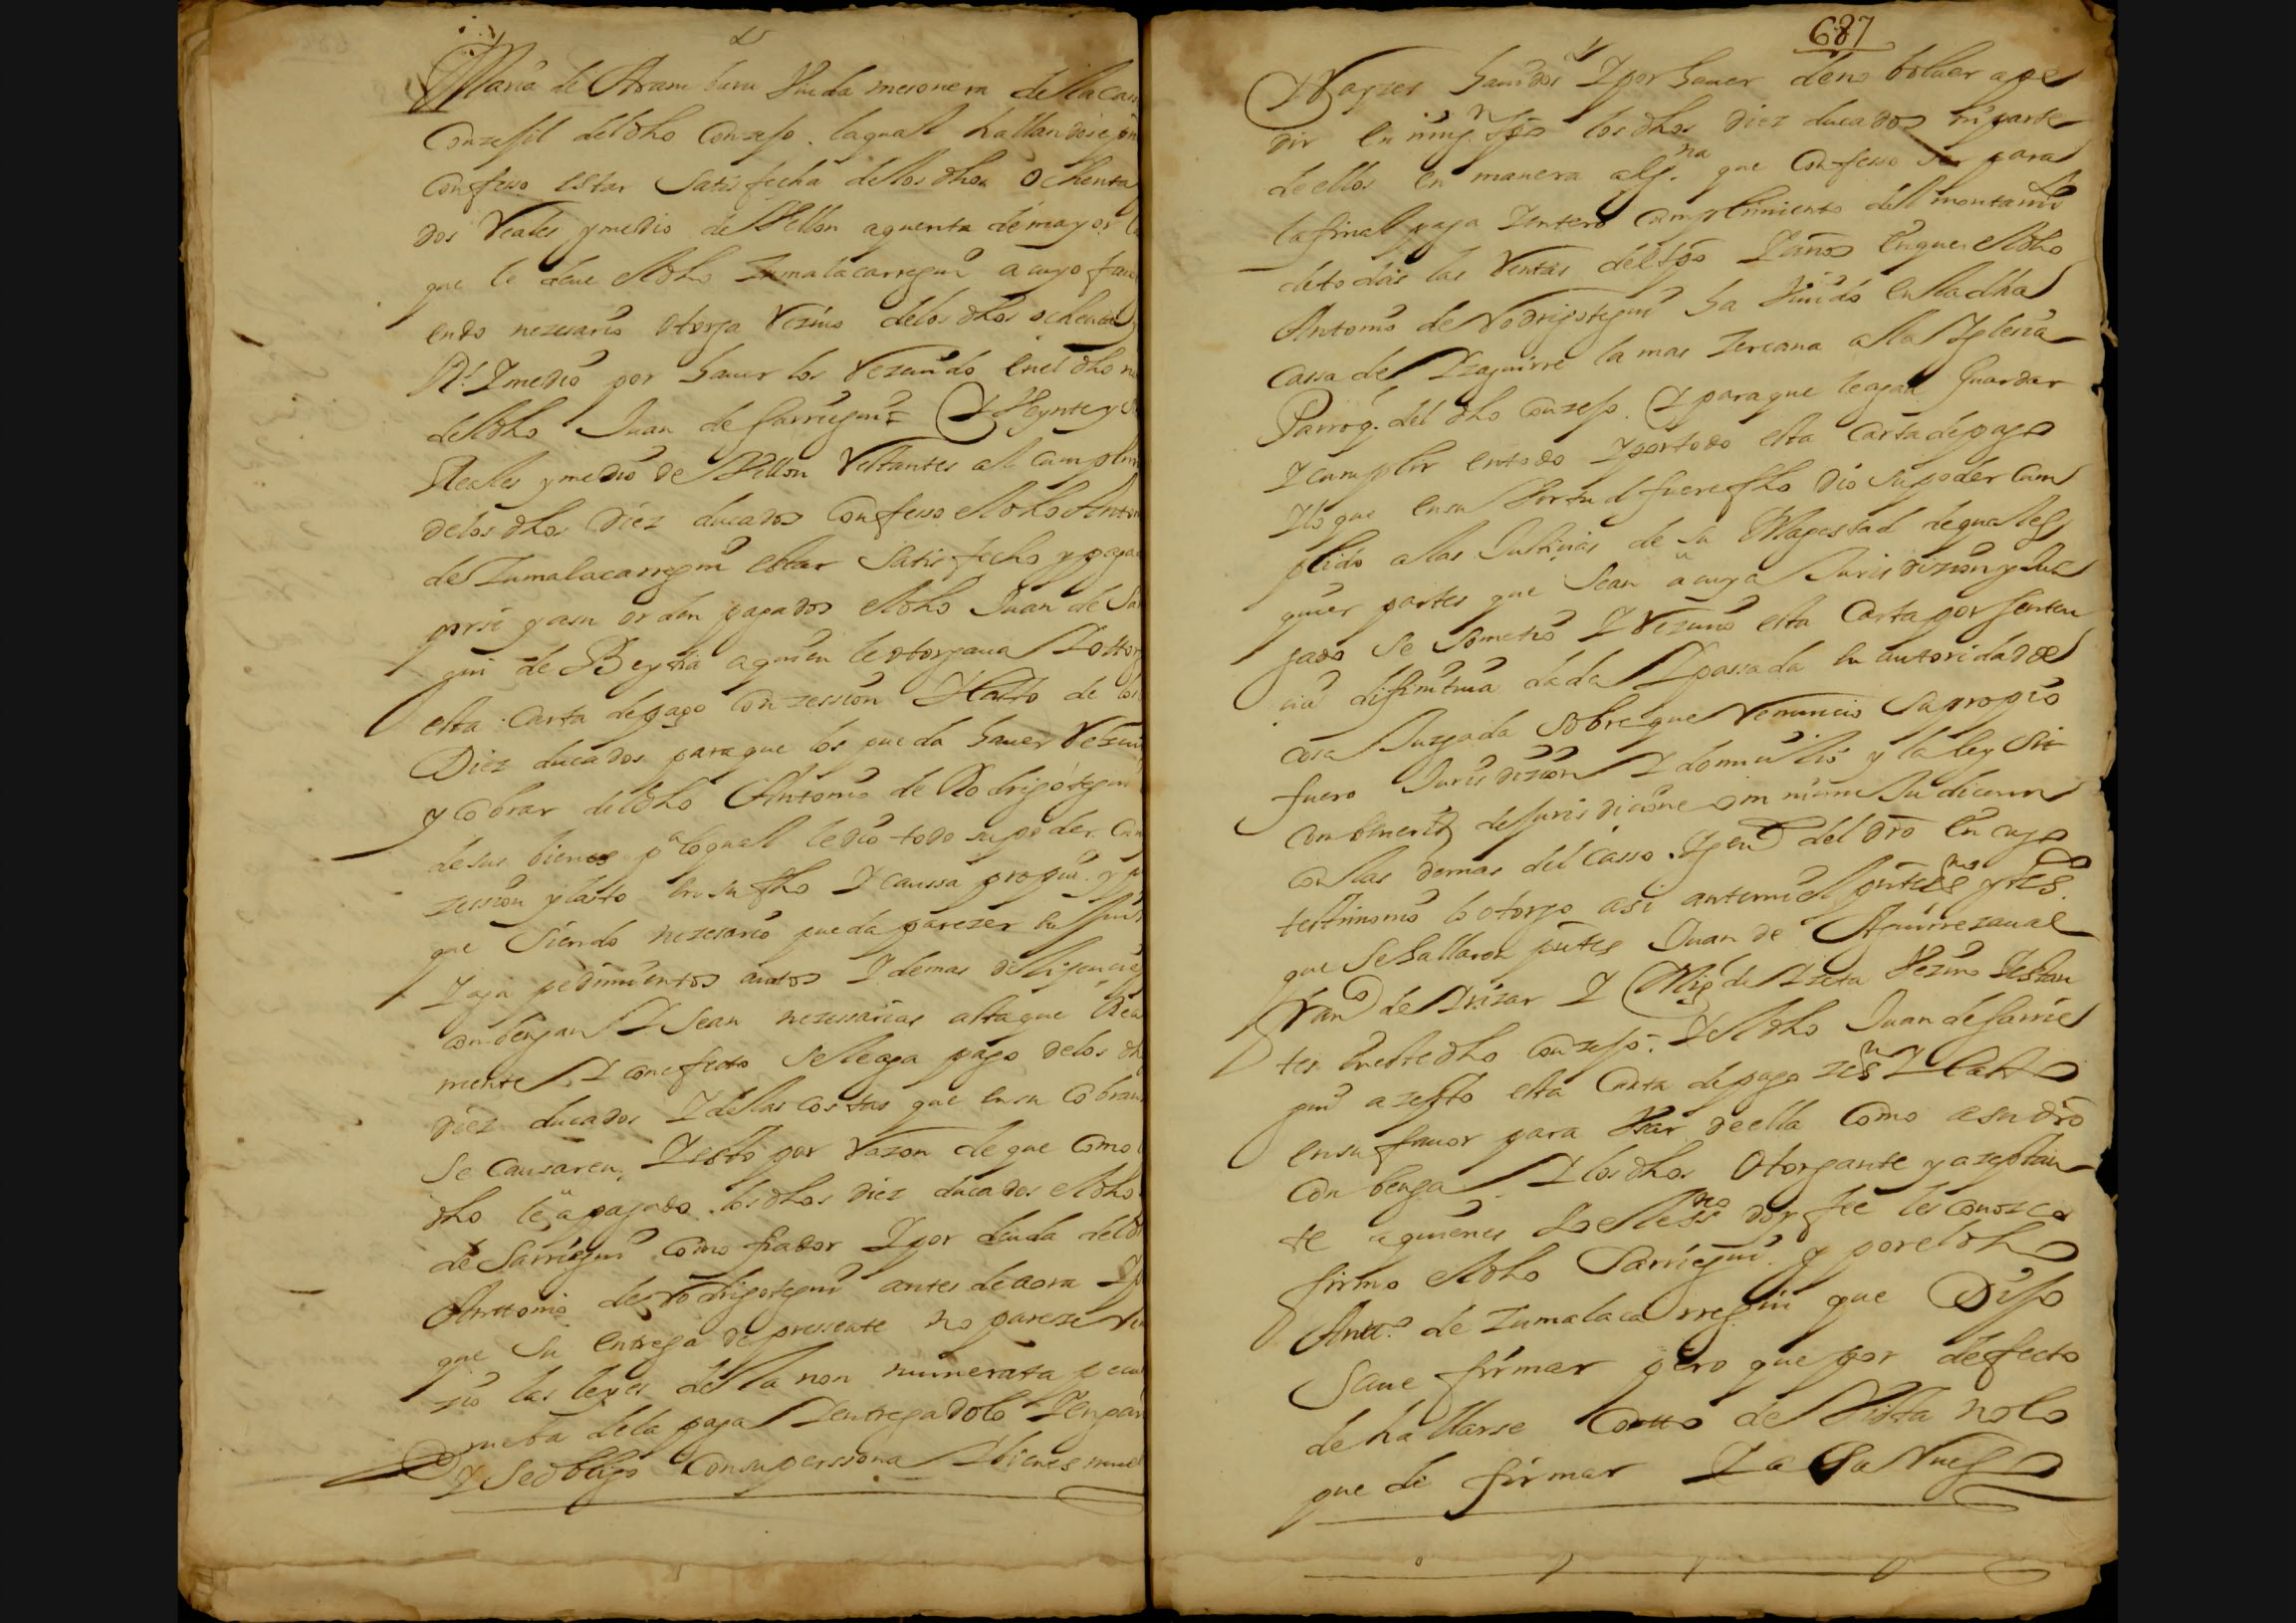 Maria de Aram buru Viuda mesonera dellacasa
Conzejil deldho Conzejo. laqual hallandose
Confeso estar Satisfecha dellosdhos Ochenta
dos Reales ymedio de Vellon aquenta demayor
que le deue eldho Zumalacarregui a cuyo fau
endo nezesario otorga Reziuo delos dhos ochenta y
Rs. Ymedio por hauer los Rezeuido enel dho
deldho Juan de Sarriegui = Y Veynte y
Reales ymedio de Vellon Restantes al Cumplim
delos dhos Diez ducados Confesso eldho Anton
de Zumalacarregui estar Satisfecho y pagado
porsi y asu orden pagados eldho Juan de Sa
gui de Beytia aquien leotorgaua Y ottorg
esta Carta depago Conzession Y lasto de los
Diez ducados paraque los pueda hauer Rezeui
y Cobrar deldho Antonio de Rodrigotegui
desus bienes pa loqual ledio todo supoder. Con
zession y lasto en su fho Y caussa propia. y p
que Siendo nezesario pueda parezer en Juiz
Y aga pedimientos autos Y demas diligencias
conbengan Y Sean nezessarias astaque Rea
mente Y conefecto Seleaga pago delos dh
diez ducados Y dellas costas que ensu Cobran
Se Causaren, Y esto por Razon deque Como
dho le a pagado losdhos diez ducados eldho
de Sarriegui Como fiador Y por deuda deld
Anttonio de Rodrigotegui antes deaora Y p
que Su entrega depressente no pareze Re
zio las leyes de la non numerata pecu
prueba dela paga Y entregadolo Y engan
Y Seobligo Consuperssona Y bienes mue
687
Y Rayzes hauidos Y por hauer deno boluer a pe
dir en ningn tpo los dhos diez ducados ni parte
deellos en manera algna que Confesso Ser para
la final paga Y entero Cumplimiento del montamto
detodas las Rentas deltpo Y años enque eldho
Antonio de Rodrigotegui ha Viuido enladha
Cassa de Yzaguirre la mas zercana alla Yglesia
Parrog. del dho Conzejo. Y paraque leagan Guardar
Y cumplir entodo Y portodo esta Carta depago
Y lo que ensu Vertud fuere fho dio Supoder Cum
plido a las Justicias de Su Magestad dequales
quier partes que Sean a cuya Jurisdizion y Juz
gado Se Sometio Y Reziuio esta Carta por senten
cia difinitiua dada Y passada en autoridad de
cosa Juzgada Sobreque Renuncio Supropio
fuero Jurisdizion Y domicilio y la ley Si
conbenerit dejurisdicione omnium Judicum
con las demas del casso. Y gen del dro en cuyo
testimonio lo otorgo asi antemi el
que Sehallaron pntes Juan de Aguirrezaual
Franco de Yrizar Y Migl de Yzeta Vezinos Y estan
tes enestedho Conzejo. Y eldho Juan de Sarrie
gui azepto esta Carta depago Y lasto
ensu fauor para Vsar deella Como asu dro
Conbenga Y losdhos Otorgante yazeptan
te aquienes Yo el essno doy fee les Conozco
firmo eldho Sarriegui. y porel dho
Antto. de Zumalacarregui que Dijo
Saue firmar pero que por defecto
de hallarse Cortto de Vista nolo
que de firmar